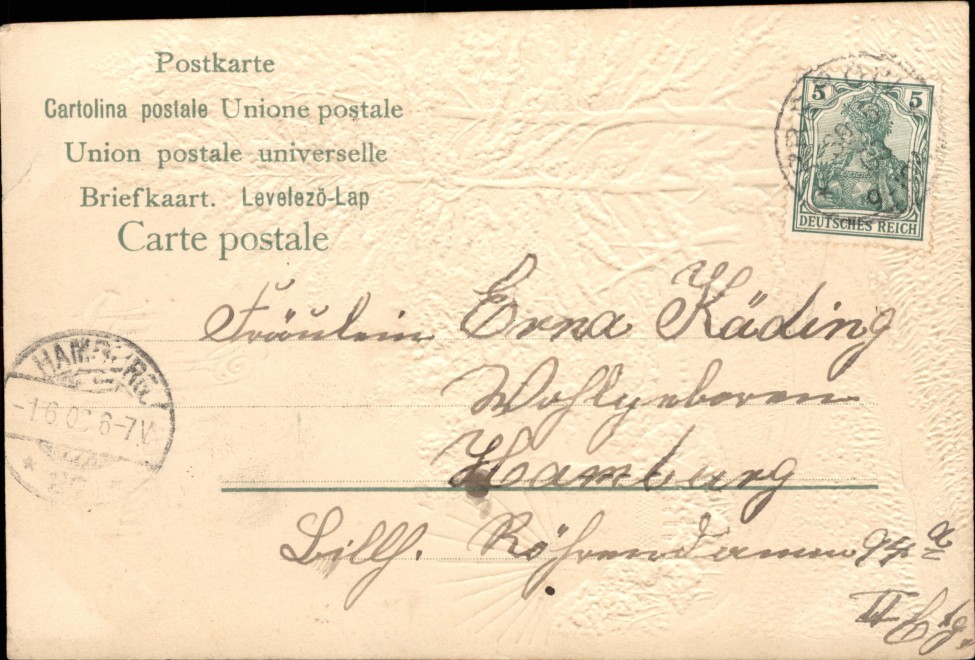 Postkarte
Cartolina postale Unione postale
Union postale universelle
Briefkaart. Levelező-Lap
Carte postale
5 5
DEUTSCHES REICH
Fräulein Erna Käding
Wohlgeboren
Hamburg
HAMBURG
-1.6.0 6-7V.
Billh. Röhrendamm 94 a
II Etg.